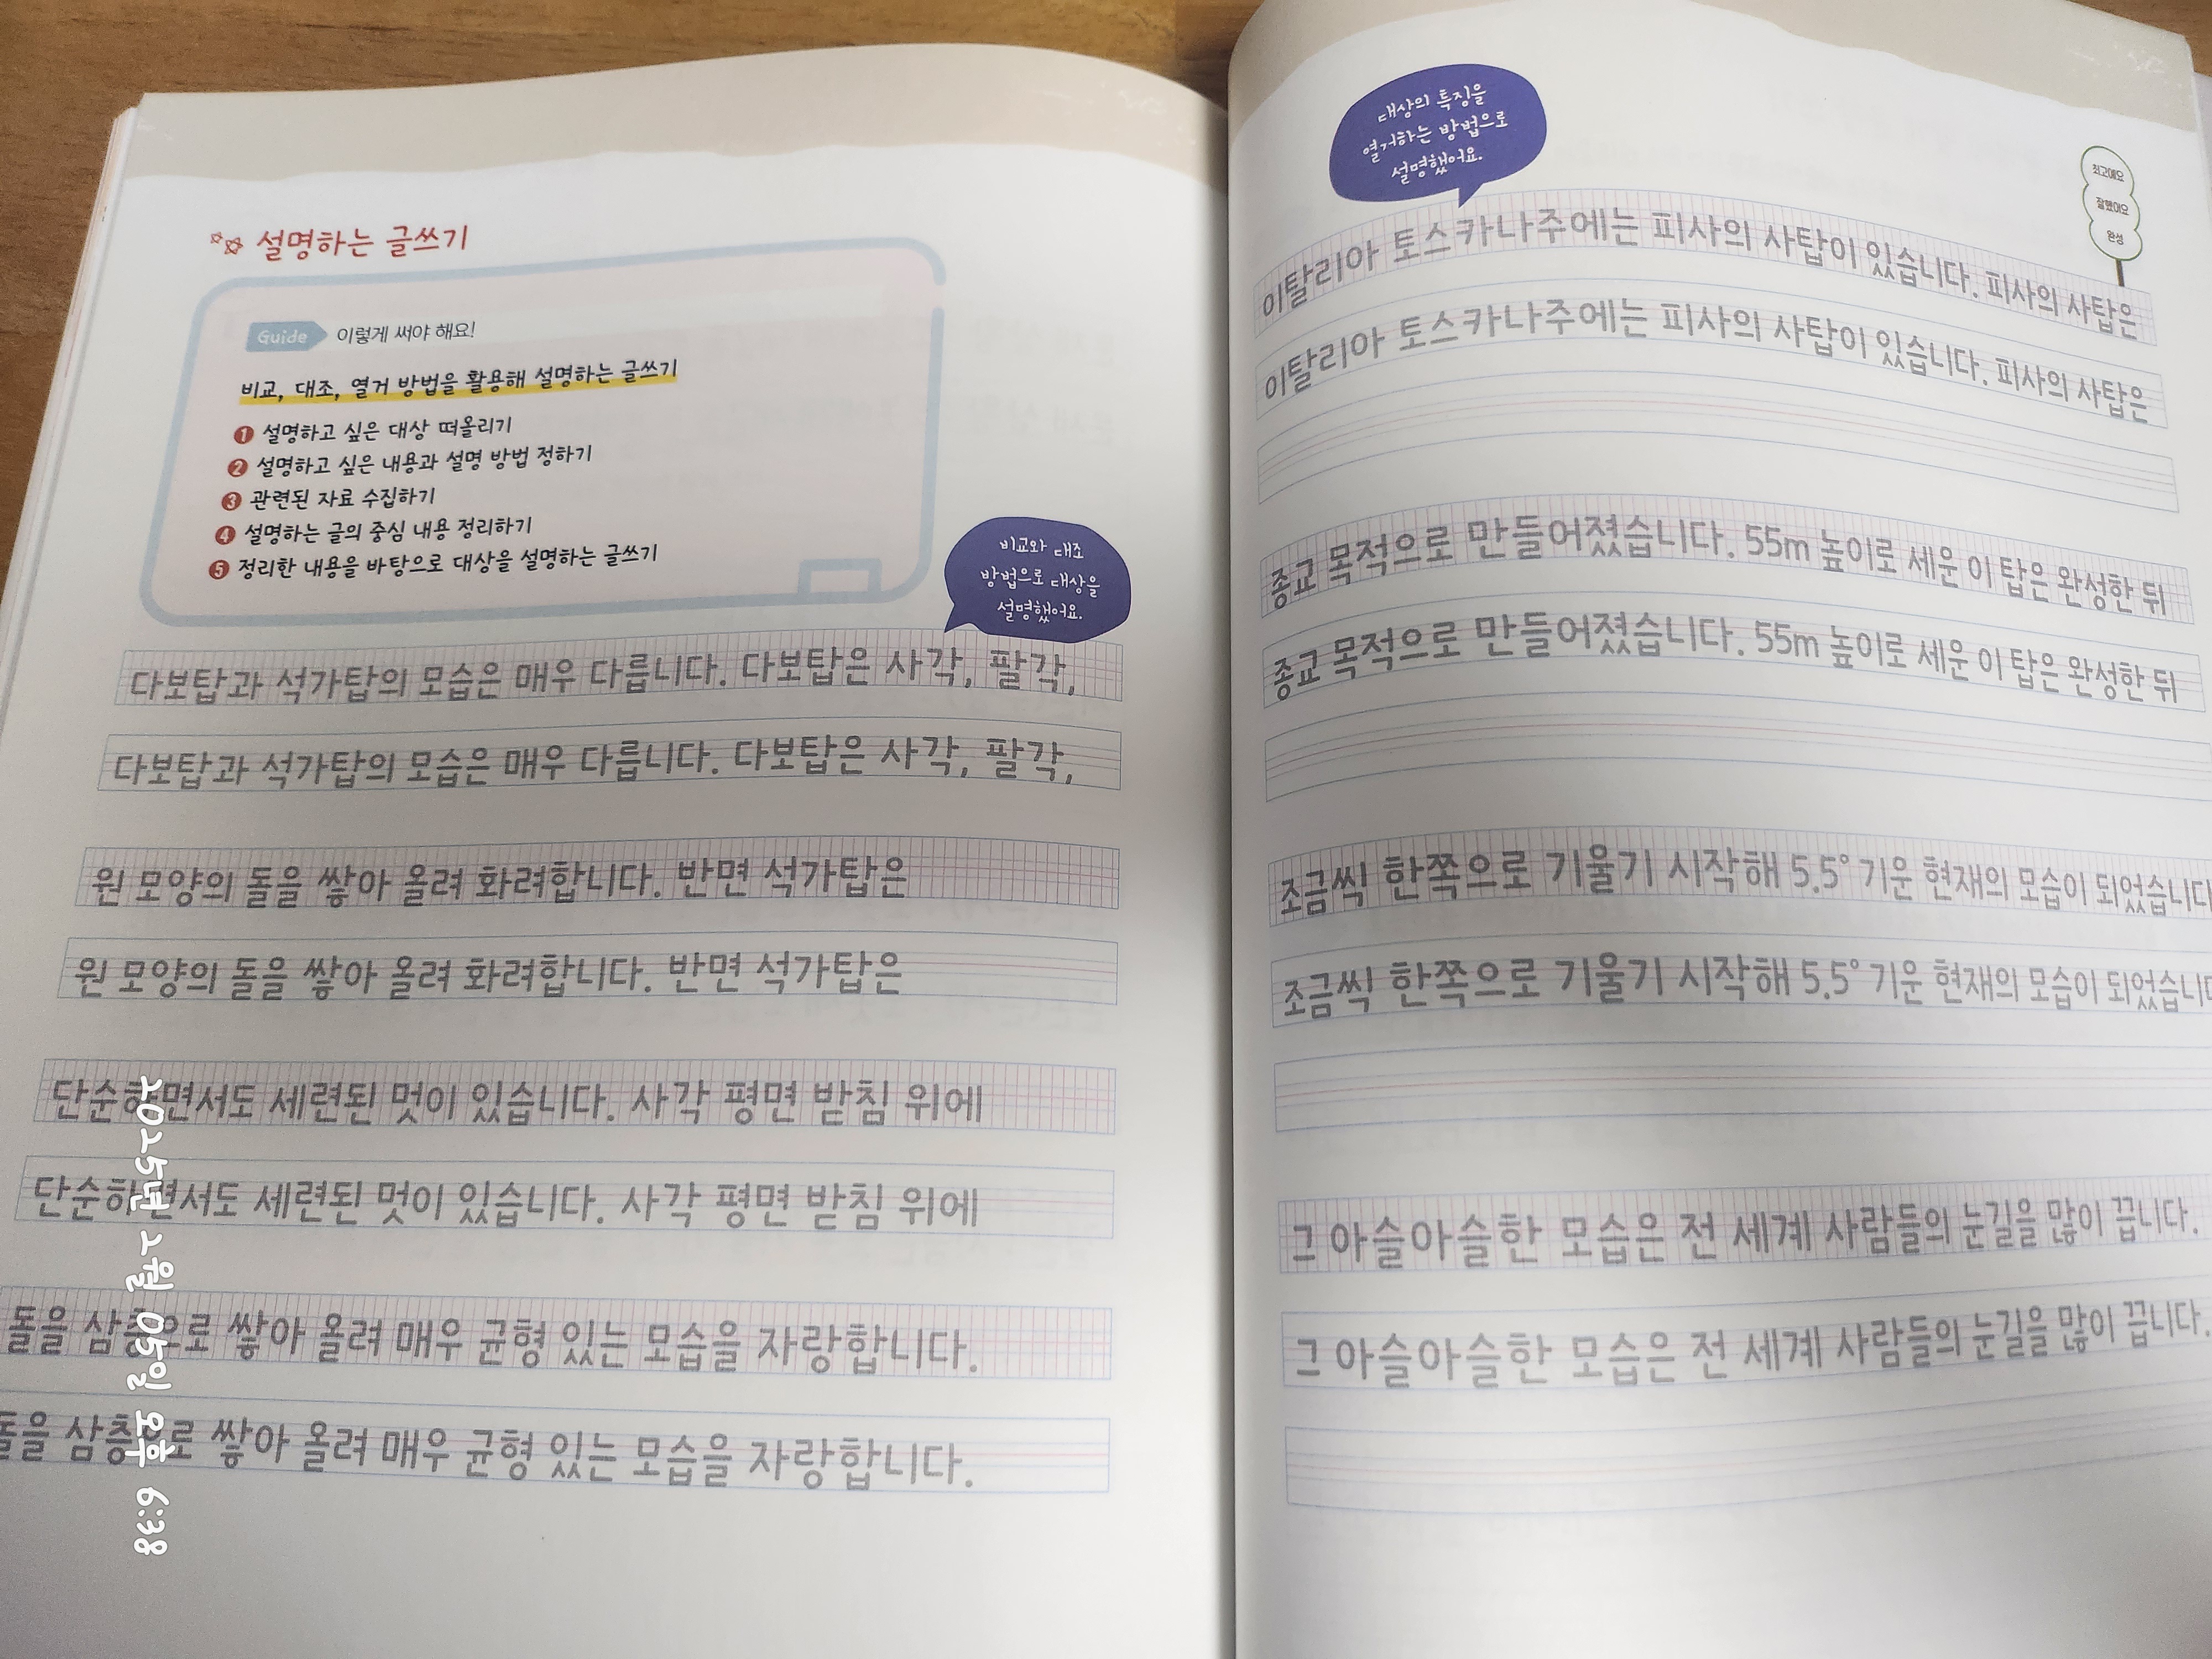 설명하는 글쓰기
Guide 이렇게 써야 해요!
비교, 대조, 열거 방법을 활용해 설명하는 글쓰기
1 설명하고 싶은 대상 떠올리기
2 설명하고 싶은 내용과 설명 방법 정하기
3 관련된 자료 수집하기
4 설명하는 글의 중심 내용 정리하기
5 정리한 내용을 바탕으로 대상을 설명하는 글쓰기
비교와 대조
방법으로 대상을
설명했어요.
다보탑과 석가탑의 모습은 매우 다릅니다. 다보탑은 사각, 팔각,
다보탑과 석가탑의 모습은 매우 다릅니다. 다보탑은 사각, 팔각,
원 모양의 돌을 쌓아 올려 화려합니다. 반면 석가탑은
원 모양의 돌을 쌓아 올려 화려합니다. 반면 석가탑은
단순하면서도 세련된 멋이 있습니다. 사각 평면 받침 위에
단순하면서도 세련된 멋이 있습니다. 사각 평면 받침 위에
돌을 삼층으로 쌓아 올려 매우 균형 있는 모습을 자랑합니다.
돌을 삼층으로 쌓아 올려 매우 균형 있는 모습을 자랑합니다.
2025년 2월 05일 오후 6:38
대상의 특징을
열거하는 방법으로
설명했어요.
최고예요
잘했어요
완성
이탈리아 토스카나주에는 피사의 사탑이 있습니다. 피사의 사탑은
이탈리아 토스카나주에는 피사의 사탑이 있습니다. 피사의 사탑은
종교 목적으로 만들어졌습니다. 55m 높이로 세운 이 탑은 완성한 뒤
종교 목적으로 만들어졌습니다. 55m 높이로 세운 이 탑은 완성한 뒤
조금씩 한쪽으로 기울기 시작해 5.5° 기운 현재의 모습이 되었습니다
조금씩 한쪽으로 기울기 시작해 5.5° 기운 현재의 모습이 되었습니다
그 아슬아슬한 모습은 전 세계 사람들의 눈길을 많이 끕니다.
그 아슬아슬한 모습은 전 세계 사람들의 눈길을 많이 끕니다.